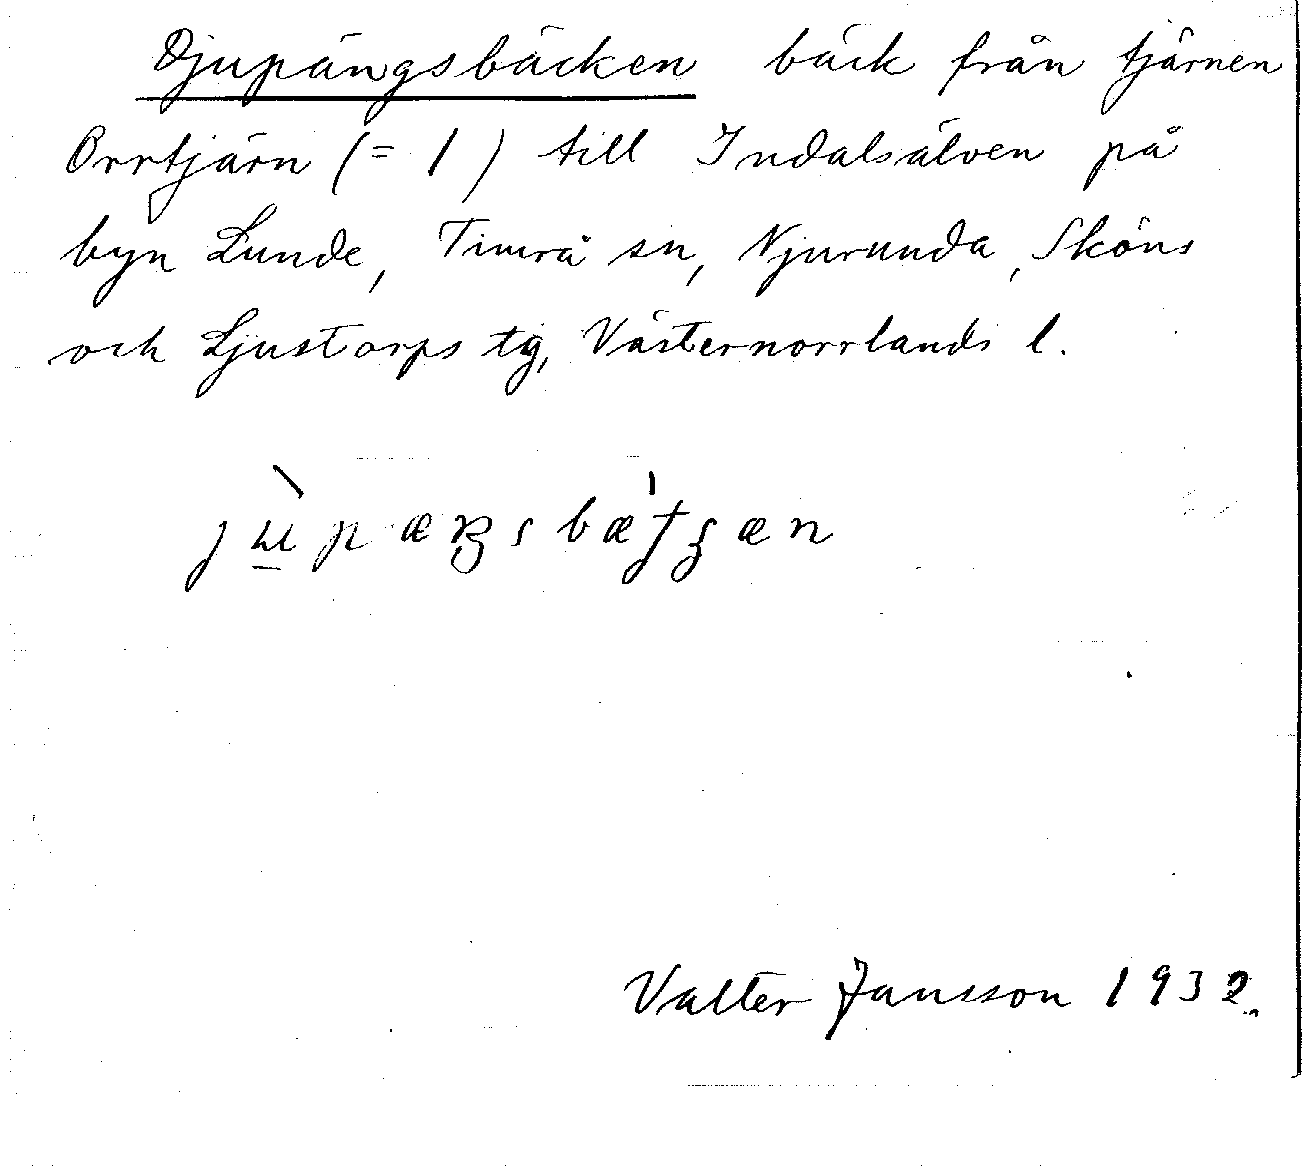 Djupängsbäcken bäck från tjärnen
Orrtjärn (= 1) till Indalsälven på
byn Lunde, Timrå sn, Njurunda, Sköns
och Ljustorps tg, Västernorrlands l.
Valter Jansson 1932.